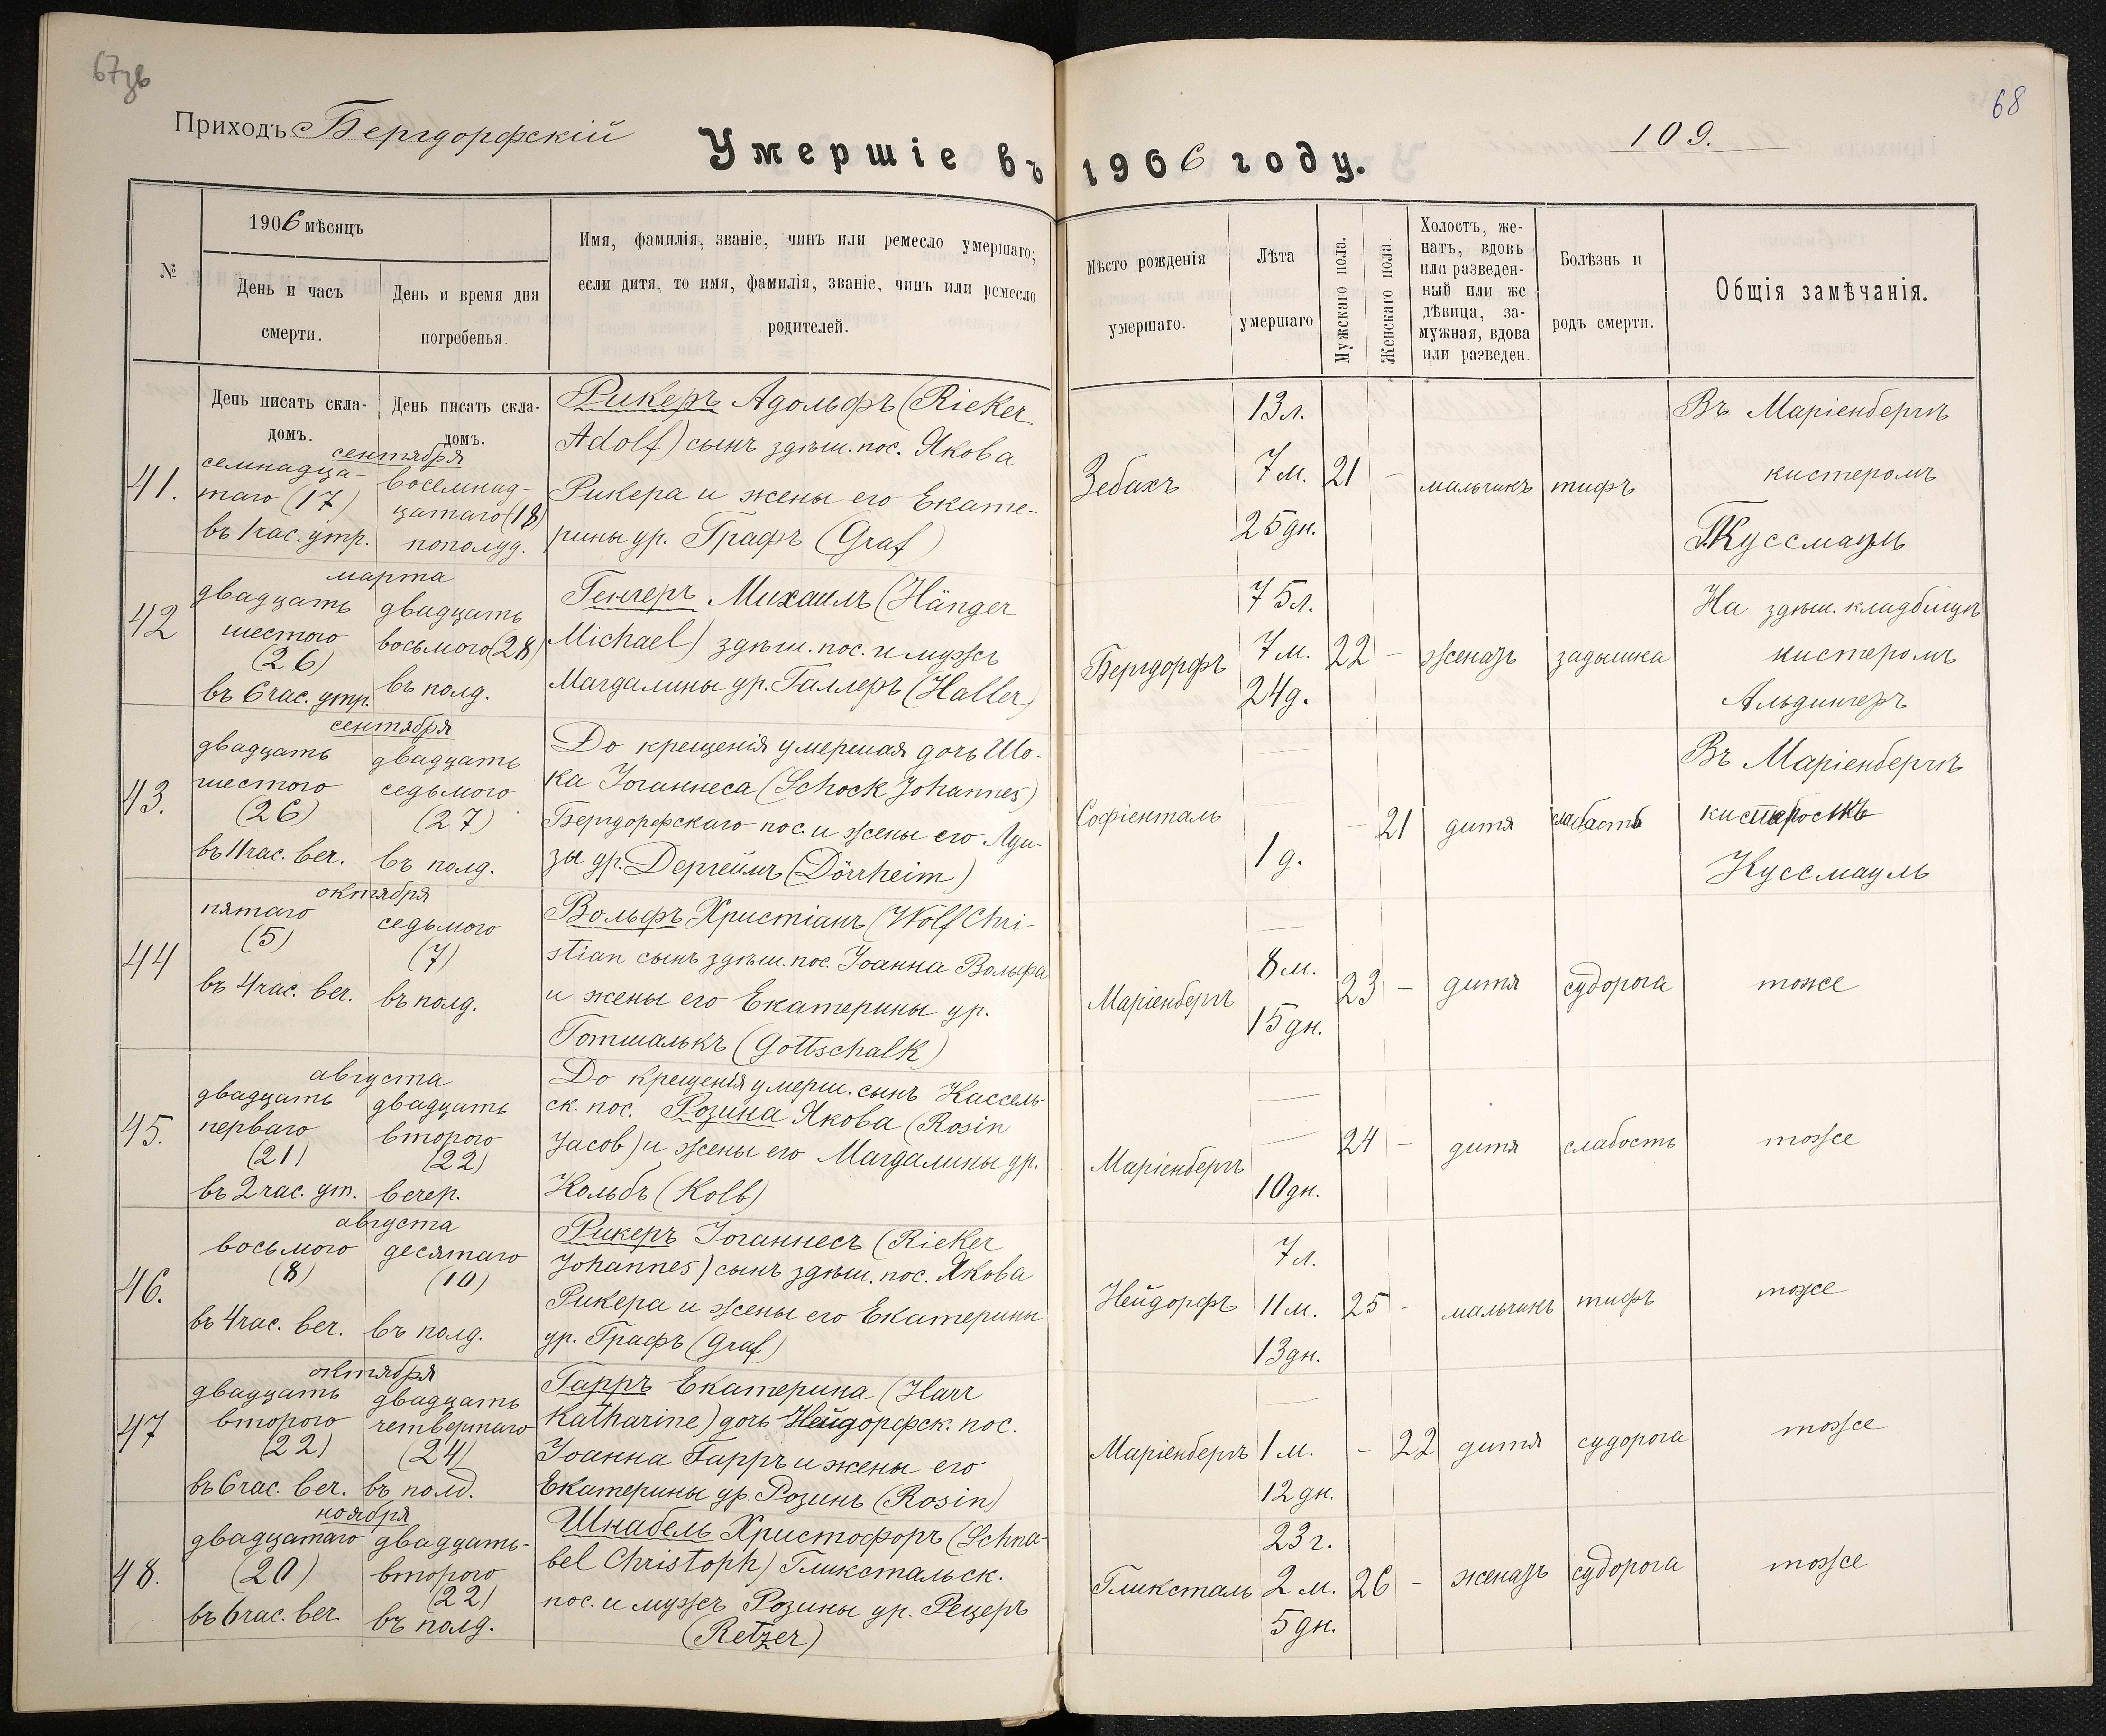 67зв
68
Приходъ Бергдорфскій
109.
Умершіе въ 1906 году.
№
1906 мѣсяцъ
День и часъ
смерти.
День и время дня
погребенья.
Имя, фамилія, званіе, чинъ или ремесло умершаго;
если дитя, то имя, фамилія, званіе, чинъ или ремесло
родителей.
Мѣсто рожденія
умершаго.
Лѣта
умершаго
Мужскаго пола.
Женскаго пола.
Холостъ, же-
натъ, вдовъ
или разведен-
ный или же
дѣвица, за-
мужная, вдова
или разведен.
Болѣзнь и
родъ смерти.
Общія замѣчанія.
День писать скла-
домъ.
День писать скла-
домъ.
41.
сентября
семнадца-
таго (17)
въ 1 час. утр.
восемнад-
цатаго (18)
пополуд.
Рикеръ Адольфъ (Rieker
Adolf) сынъ здѣш. пос. Якова
Рикера и жены его Екате-
рины ур. Графъ (Graf)
Зебахъ
13 л.
7 м.
25 дн.
21
-
мальчикъ
тифъ
Въ Маріенбергѣ
кистеромъ
Куссмауль
42
марта
двадцать
шестого
(26)
въ 6 час. утр.
двадцать
восьмого (28)
въ полд.
Генгеръ Михаилъ (Hänger
Michael) здѣш. пос. и мужъ
Магдалины ур. Галлеръ (Haller)
Бергдорфъ
75 л.
7 м.
24 д.
22
-
женатъ
задышка
На здѣш. кладбищѣ
кистеромъ
Альдингеръ
43.
сентября
двадцать
шестого
(26)
въ 11 час. веч.
двадцать
седьмого
(27)
въ полд.
До крещенія умершая дочь Шо-
ка Іоганнеса (Schock Johannes)
Бергдорфскаго пос. и жены его Луи-
зы ур. Дергеймъ (Dörrheim)
Софіенталь
1 д.
-
21
дитя
слабость
Въ Маріенбергѣ
кистеромъ
Куссмауль
44
октября
пятаго
(5)
въ 4 час. веч.
седьмого
(7)
въ полд.
Вольфъ Христіанъ (Wolf Chri-
stian сынъ здѣш. пос. Іоанна Вольфа
и жены его Екатерины ур.
Готшалькъ (Gottschalk)
Маріенбергъ
8 м.
15 дн.
23
-
дитя
судорога
тоже
45.
августа
двадцать
перваго
(21)
въ 2 час. ут.
двадцать
второго
(22)
вечер.
До крещенія умерш. сынъ Кассель-
ск. пос. Розина Якова (Rosin
Jacob) и жены его Магдалины ур.
Кольбъ (Kolb)
Маріенбергъ
10 дн.
24
-
дитя
слабость
тоже
46.
августа
восьмого
(8)
въ 4 час. веч.
десятаго
(10)
въ полд.
Рикеръ Іоганнесъ (Rieker
Johannes) сынъ здѣш. пос. Якова
Рикера и жены его Екатерины
ур. Графъ (Graf)
Нейдорфъ
7 л.
11 м.
13 дн.
25
-
мальчикъ
тифъ
тоже
47
октября
двадцать
второго
(22)
въ 6 час. веч.
двадцать
четвертаго
(24)
въ полд.
Гарръ Екатерина (Harr
Katharine) дочь Нейдорфск. пос.
Іоанна Гарръ и жены его
Екатерины ур. Розинъ (Rosin)
Маріенбергъ
1 м.
12 дн.
-
22
дитя
судорога
тоже
48.
ноября
двадцатаго
(20)
въ 6 час. веч
двадцать-
второго
(22)
въ полд.
Шнабель Христофоръ (Schna-
bel Christoph) Гликстальск.
пос. и мужъ Розины ур. Рецеръ
(Retzer)
Гликсталь
23 г.
2 м.
5 дн.
26
-
женатъ
судорога
тоже